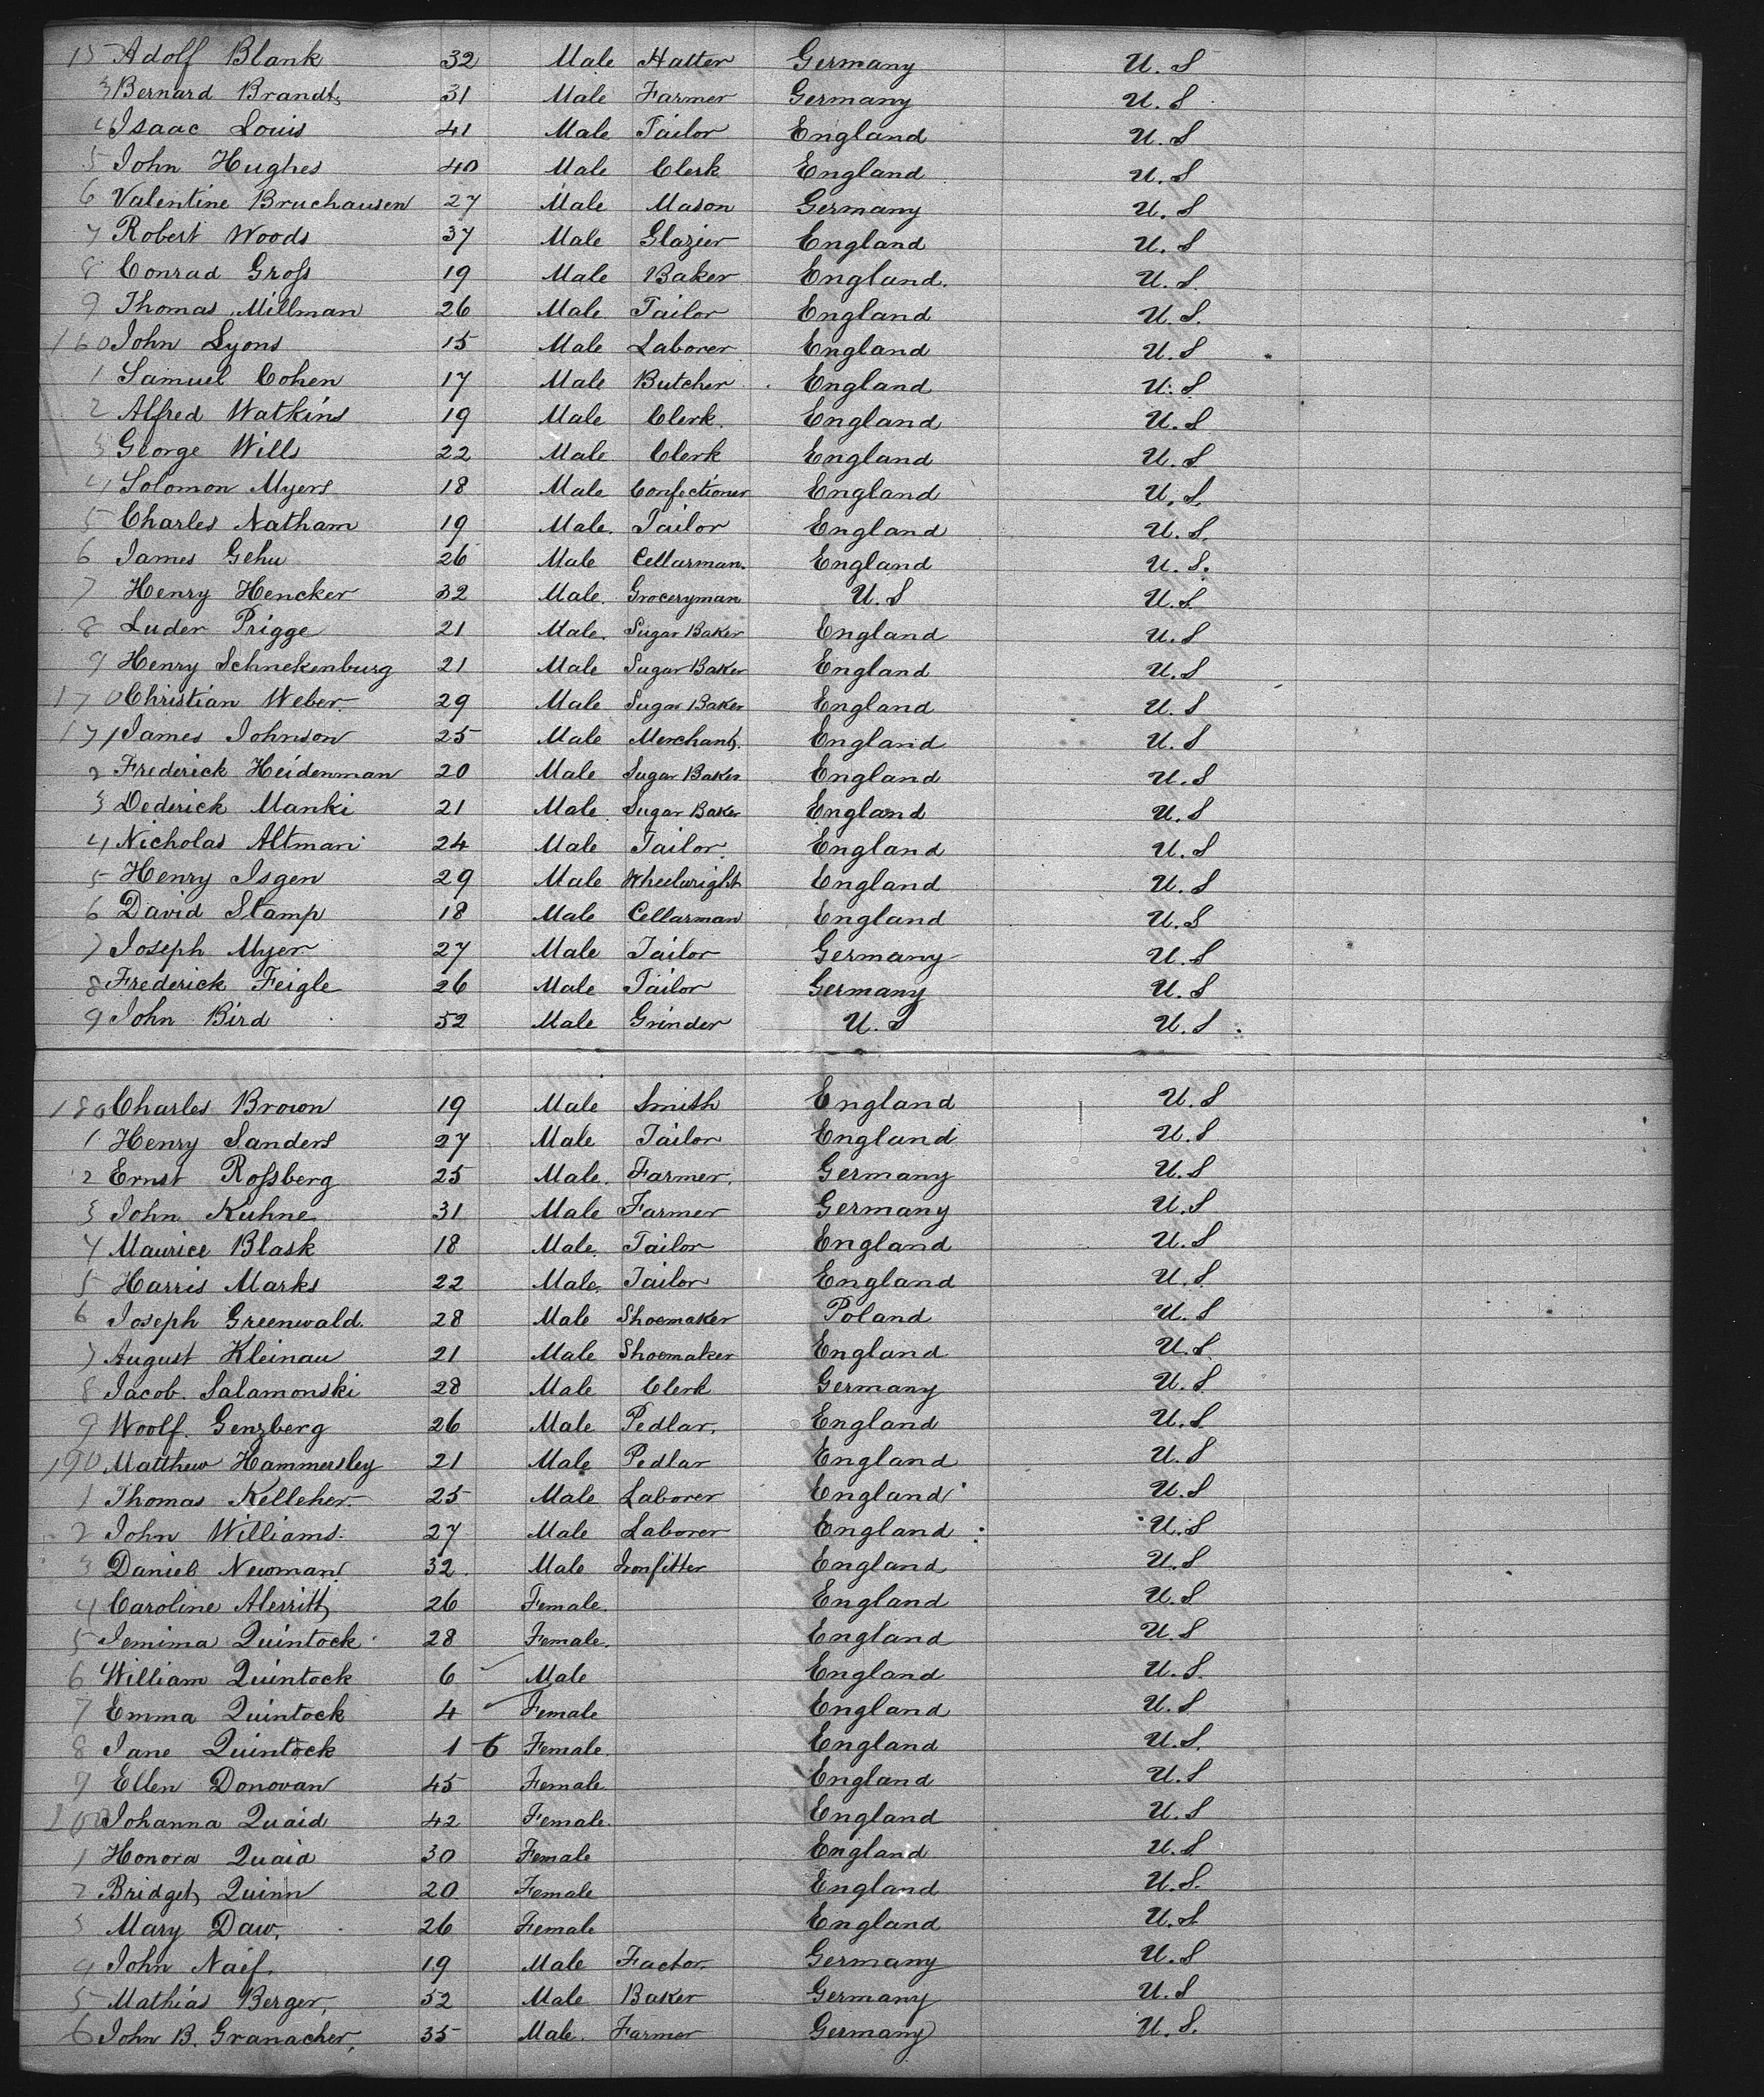 15 Adolf Blank 32 Male Hatter Germany U. S
3 Bernard Brandt 31 Male Farmer Germany U. S
4 Isaac Louis 41 Male Tailor England U. S
5 John Hughes 40 Male Clerk England U. S
6 Valentine Bruchausen 27 Male Mason Germany U. S
7 Robert Woods 37 Male Glazier England U. S
8 Conrad Groſs 19 Male Baker England. U. S.
9 Thomas Millman 26 Male Tailor England U. S.
160 John Lyons 15 Male Laborer England U. S
1 Samuel Cohen 17 Male Butcher England U. S
2 Alfred Watkins 19 Male Clerk. England U. S
3 George Wills 22 Male Clerk England U. S
4 Solomon Myers 18 Male Confectioner England U. S.
5 Charles Natham 19 Male. Tailor England U. S.
6 James Gehu 26 Male Cellarman. England U. S.
7 Henry Hencker 32 Male. Groceryman U. S U. S.
8 Luder Prigge 21 Male. Sugar Baker England U. S
9 Henry Schnekenburg 21 Male Sugar Baker England U. S
170 Christian Weber. 29 Male Sugar Baker England U. S
171 James Johnson 25 Male Merchant. England U. S
2 Frederick Heidenman 20 Male Sugar Baker England U. S
3 Dederick Manki 21 Male Sugar Baker England U. S
4 Nicholas Altman 24 Male Tailor. England U. S
5 Henry Isgen 29 Male Wheelwright England U. S
6 David Stamp 18 Male Cellarman England U. S
7 Joseph Myer 27 Male Tailor Germany U. S
8 Frederick Feigle 26 Male Tailor Germany U. S
9 John Bird 52 Male Grinder U. S U. S.
180 Charles Brown 19 Male Smith England U. S
1 Henry Sanders 27 Male Tailor England U. S
2 Ernst Roſsberg 25 Male. Farmer. Germany U. S
3 John Kuhne 31 Male Farmer Germany U. S
4 Maurice Blask 18 Male. Tailor England U. S
5 Harris Marks 22 Male. Tailor England U. S.
6 Joseph Greenwald. 28 Male Shoemaker Poland U. S
7 August Kleinau 21 Male Shoemaker England U. S.
8 Jacob. Salamonski 28 Male Clerk Germany U. S
9 Woolf. Genzberg 26 Male Pedlar. England U. S.
190 Matthew Hammersley 21 Male Pedlar England U. S
1 Thomas Kelleher. 25 Male Laborer England U. S
2 John Williams. 27 Male Laborer England U. S
3 Daniel Newman. 32. Male Ironfitter England U. S
4 Caroline 26 Female. England U. S
5 Jemima Quintock 28 Female. England U. S
6 William Quintock 6 Male England U. S.
7 Emma Quintock 4 Female England U. S
8 Jane Quintock 1 6 Female. England U. S.
9 Ellen Donovan 45 Female England U. S
200 Johanna Quaid 42 Female. England U. S
1 Honora Quaid 30 Female England U. S
2 Bridget Quinn 20 Female England U. S.
3 Mary Daw. 26 Female England U. S.
4 John Naif. 19 Male Factor. Germany U. S
5 Mathias Berger. 52 Male Baker Germany U. S
6 John B. Granacher, 35 Male. Farmer Germany U. S.